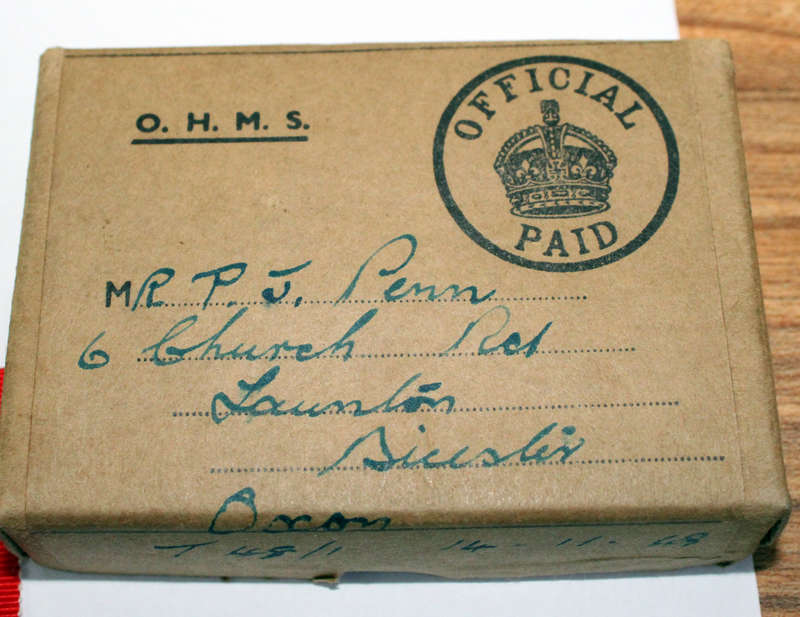 O. H. M. S.
OFFICIAL
PAID
MR P. J. Penn
6 Church Rd
Launton
Bicester
Oxon
T 48/1 14-11-49